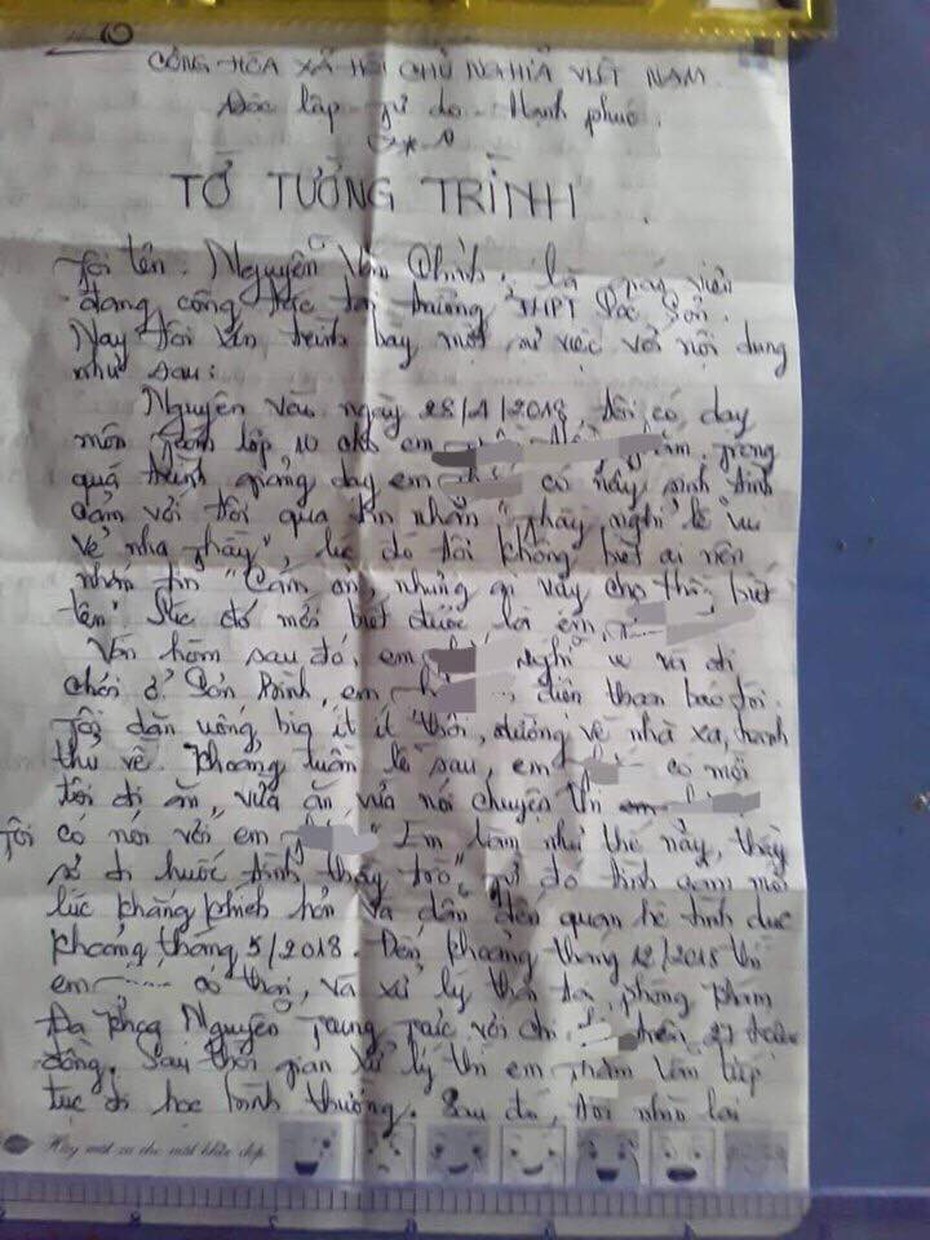 CỘNG HÒA XÃ HỘI CHỦ NGHĨA VIỆT NAM
Độc lập - Tự do - Hạnh phúc.
TỜ TƯỜNG TRÌNH
Tôi tên: Nguyễn Văn là giáo viên
đang công tác tại trường THPT
Nay tôi xin trình bày một sự việc với nội dung
như sau:
Nguyên vào ngày 28/4/2018, tôi có dạy
môn lớp 10 cho em Trong
quá trình giảng dạy em có nảy sinh tình
cảm với tôi qua tin nhắn "Thầy nghỉ lễ vui
vẻ nha thầy", lúc đó tôi không biết ai nên
nhắn tin "Cảm ơn, nhưng ai vậy cho thầy biết
tên" lúc đó mới biết được là em
Vào hôm sau đó, em nghỉ lễ và đi
chơi ở em điện thoại báo tôi.
Tôi dặn uống bia ít ít thôi, đường về nhà xa, tranh
thủ về. Khoảng tuần lễ sau, em có mời
tôi đi ăn, vừa ăn vừa nói chuyện thì em
Tôi có nói với em "Em làm như thế này, thầy
sợ đi bước tình thầy trò", từ đó tình cảm mỗi
lúc khăng khít hơn và dẫn đến quan hệ tình dục
khoảng tháng 5/2018. Đến khoảng tháng 12/2018 thì
em có thai, và xử lý thai tại phòng khám
Đa khoa Nguyễn Trung Trực với chi phí trên 2 triệu
đồng. Sau thời gian xử lý thì em vẫn tiếp
tục đi học bình thường. Sau đó, tôi nhắn lại
Hãy mãi